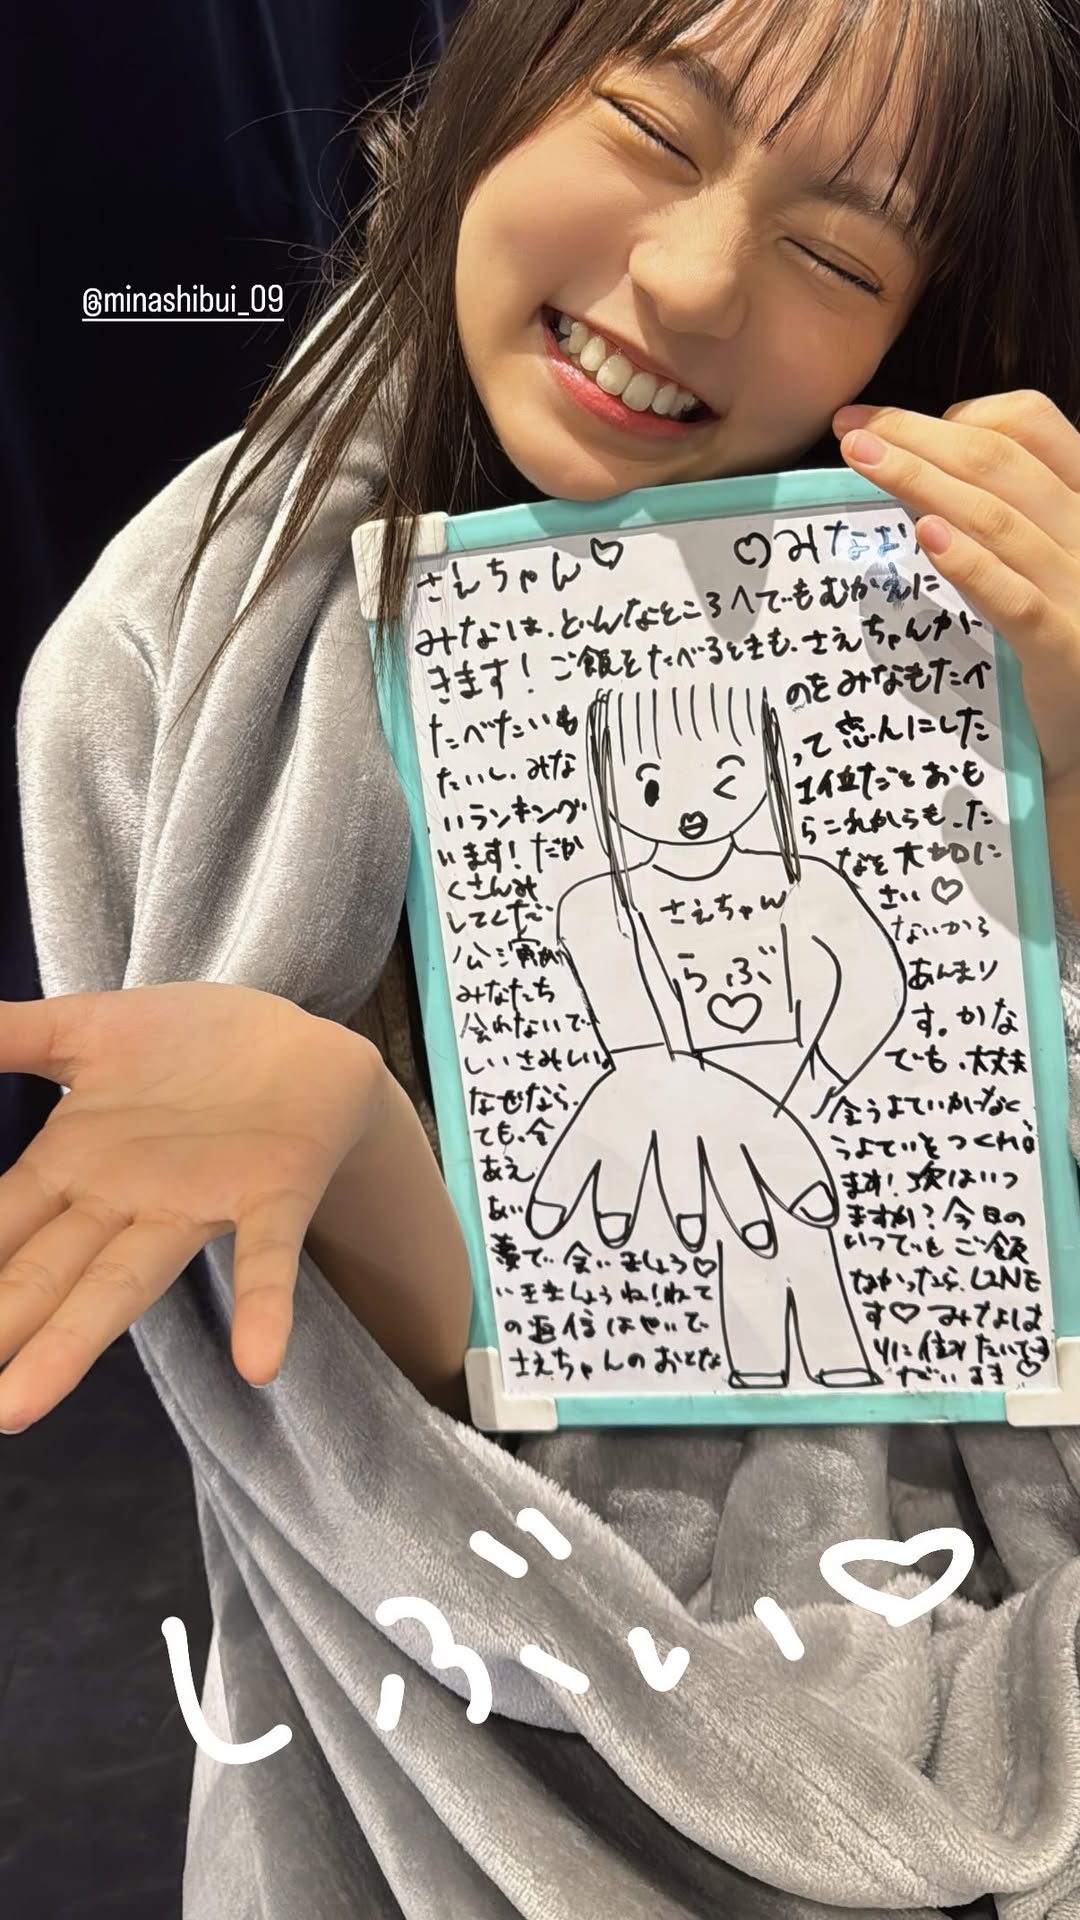 @minashibui_09
さえちゃん♡
♡みなより
みなは、どんなところへでもむかえに
きます！ご飯をたべるときも、さえちゃんが
たべたいも
のをみなもたべ
たいし、みな
って恋人にした
いランキング
1位だとおも
います！だか
らこれからも、た
くさんみ
なを大切に
してくださ
さい♡
公演が
ないから
みなたち
あんまり
会わないで
す。かな
しいさみしい。
でも、大丈夫
なぜなら、
会うよていがなく
ても、会
うよていをつくれ
あえ
ます！次はいつ
あい
ますか？今日の
夢で会いましょう♡
いつでもご飯
いきましょうね！ねて
なかったら、LINE
の返信はやいで
す♡みなは
さえちゃんのおとな
りに住みたいです
だいすき♡
さえちゃん
らぶ
♡
しぶい♡